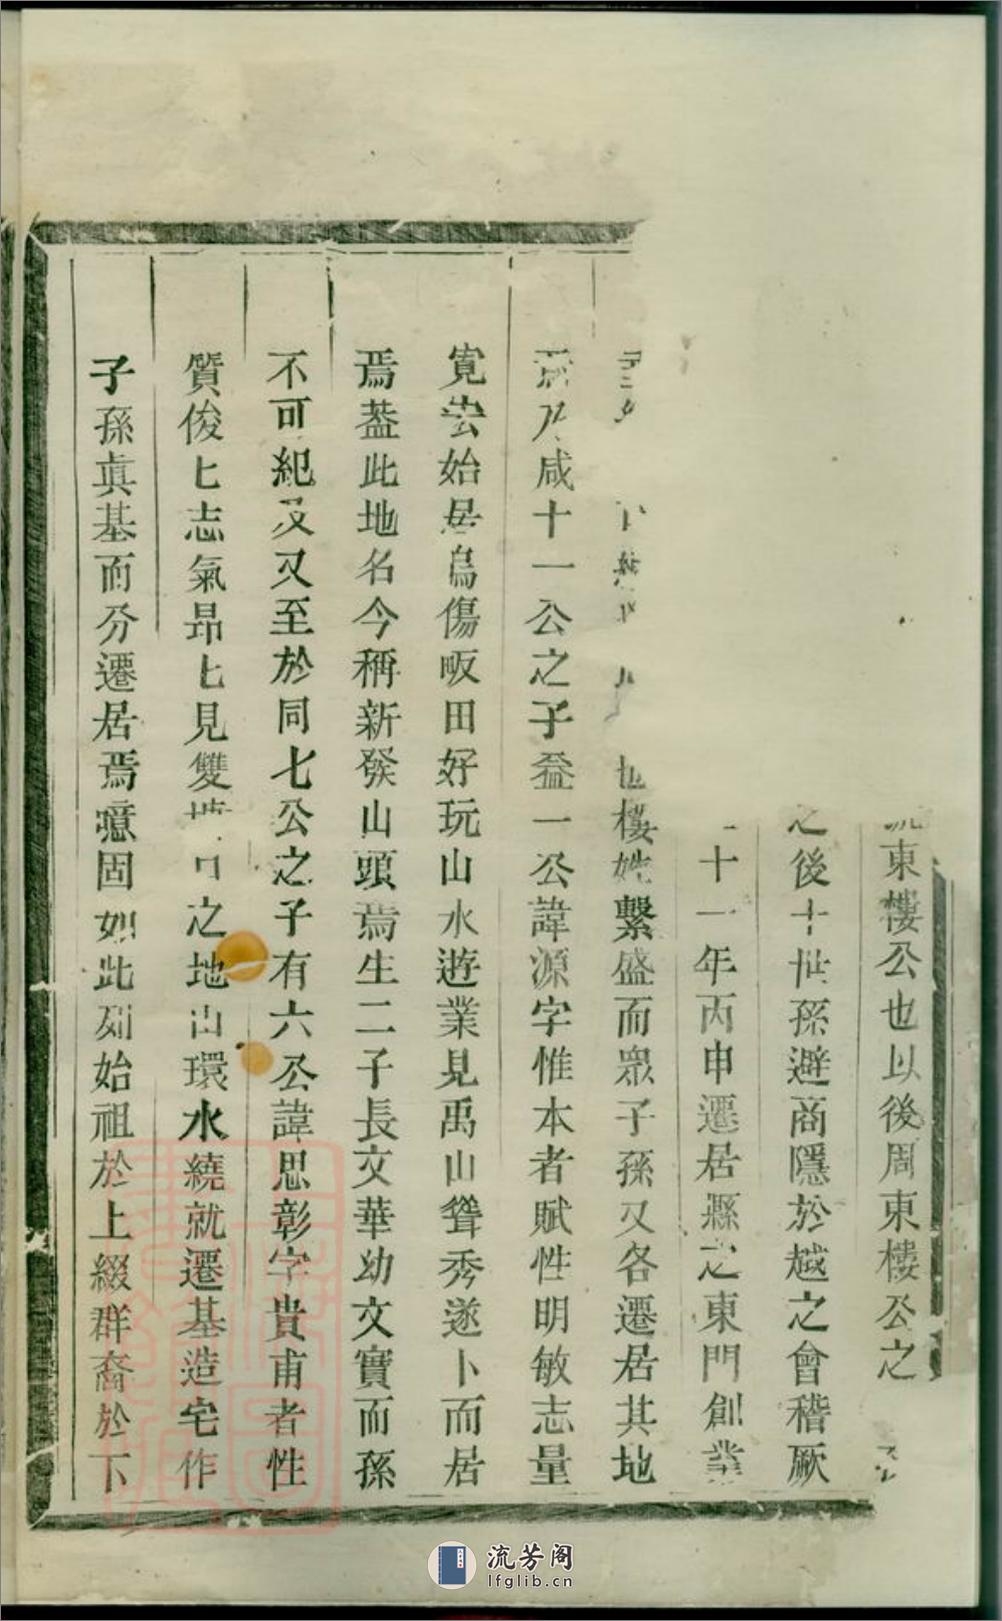 東樓公也以後周東樓公之
之後十世孫避商隱於越之會稽厥
十一年丙申遷居縣之東門創業
樓姓繫盛而眾子孫又各遷居其地
焉乃咸十一公之子益一公諱源字惟本者賦性明敏志量
寬宏始居烏傷畈田好玩山水遊業見禹山聳秀遂卜而居
焉葢此地名今稱新發山頭焉生二子長文華幼文實而孫
不可紀及又至於同七公之子有六公諱思彰字貴甫者性
質俊匕志氣昂匕見雙之地山環水繞就遷基造宅作
子孫真基而分遷居焉噫固如此列始祖於上綴群裔於下
流芳阁
lfglib.cn